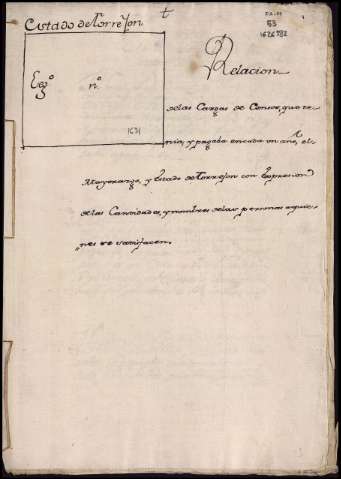 Estado de Torrejon.
Leg.º n.º
1631
t
53
Relacion
de las Cargas de Censos, que te-
nia, y pagaba en cada un año, el
Mayorazgo, y Estado de Torrejon con Expresion
de las Cantidades, y nombres de las personas a quie-
nes se satisfacen.